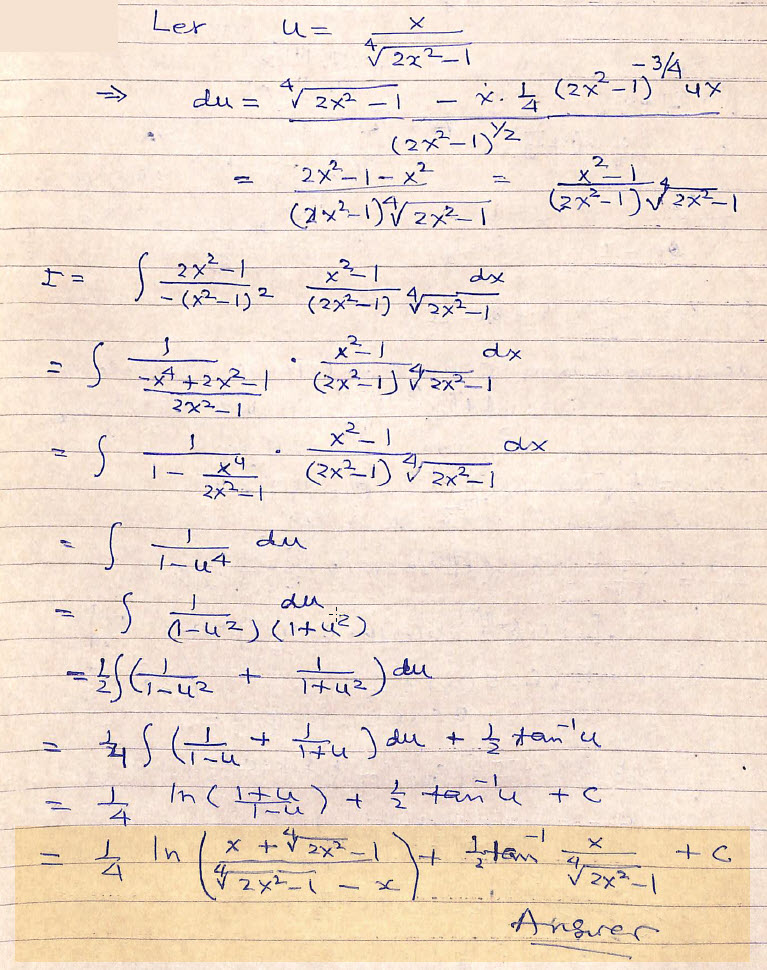 Let u = x / ∜(2x²-1)
⇒ du = (∜(2x²-1) - x · 1/4 (2x²-1)^(-3/4) 4x) / (2x²-1)^(1/2)
= (2x²-1-x²) / ((2x²-1) ∜(2x²-1)) = (x²-1) / ((2x²-1) ∜(2x²-1))
I = ∫ (2x²-1) / (-(x²-1)²) (x²-1) / ((2x²-1) ∜(2x²-1)) dx
= ∫ 1 / ((-x⁴+2x²-1) / (2x²-1)) · (x²-1) / ((2x²-1) ∜(2x²-1)) dx
= ∫ 1 / (1 - x⁴/(2x²-1)) · (x²-1) / ((2x²-1) ∜(2x²-1)) dx
= ∫ 1/(1-u⁴) du
= ∫ 1 du / ((1-u²)(1+u²))
= 1/2 ∫ (1/(1-u²) + 1/(1+u²)) du
= 1/4 ∫ (1/(1-u) + 1/(1+u)) du + 1/2 tan⁻¹u
= 1/4 ln((1+u)/(1-u)) + 1/2 tan⁻¹u + c
= 1/4 ln((x + ∜(2x²-1)) / (∜(2x²-1) - x)) + 1/2 tan⁻¹ x/∜(2x²-1) + c
Answer